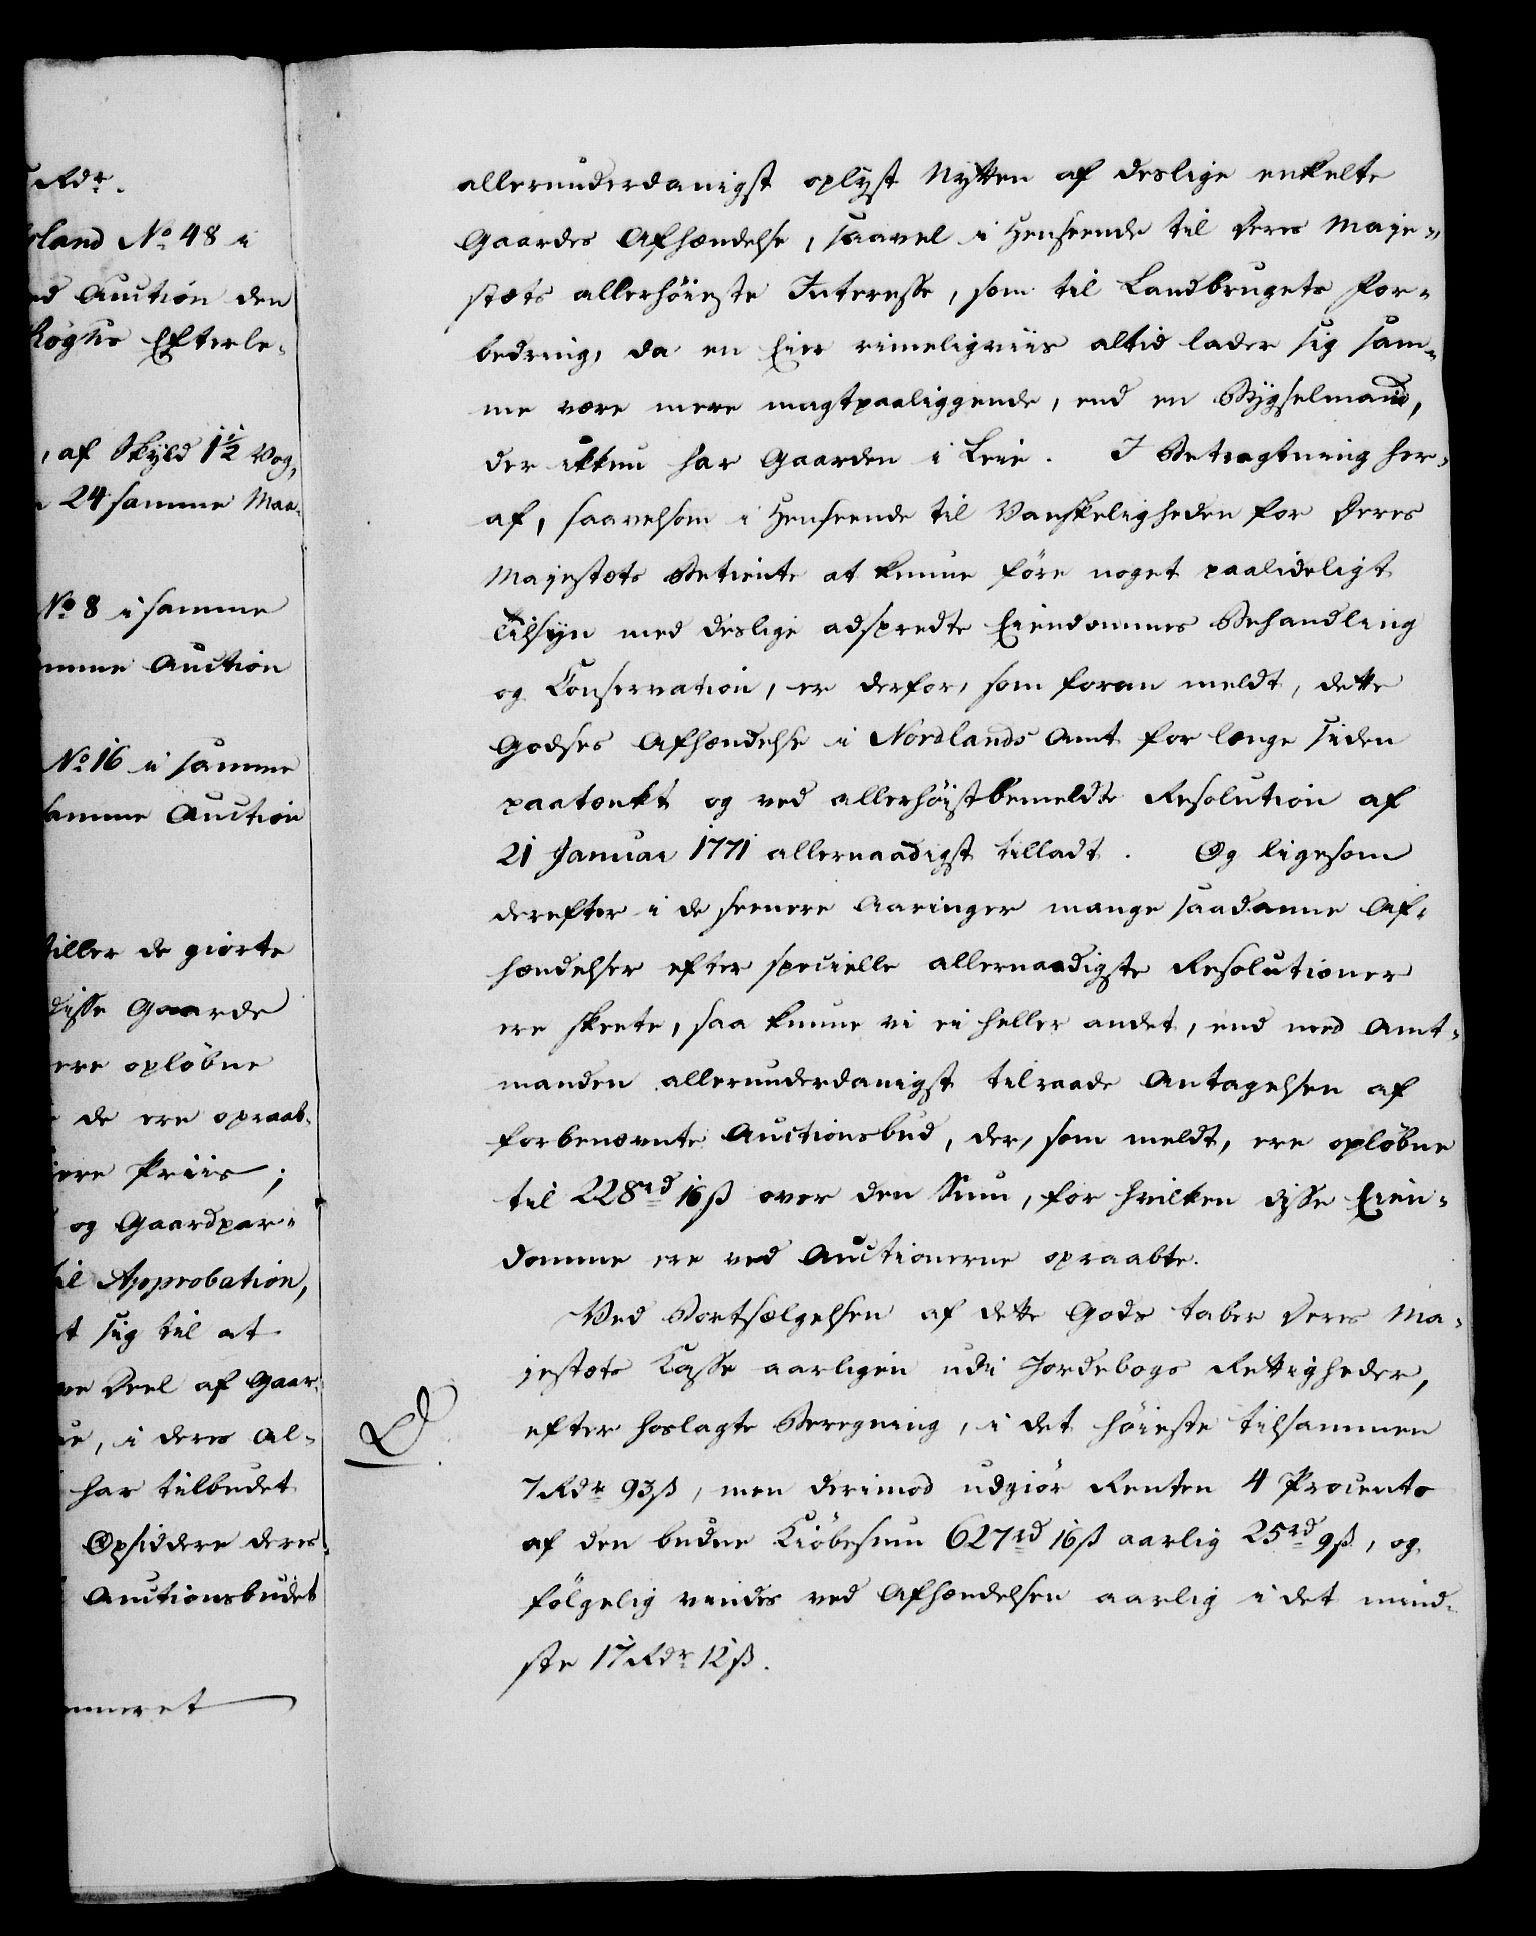 Rdr.
land No 48 i
ed Auction den
Efterle-
, af Skyld 1½ Vog,
24 samme Maa-
No 8 i samme
mme Auction
No 16 i samme
samme Auction
tiller de giorte
disse Gaarde
ere opløbne
de ere opraab-
ere Priis;
og Gaardpar-
til Approbation,
t sig til at
ve Deel af Gaar-
e, i deres Al-
har tilbudet
Opsiddere deres
Auctionsbudet
mmeret
allerunderdanigst oplyst Nytten af deslige enkelte
Gaardes Afhændelse, saavel i Henseende til Deres Maje-
stæts allerhøieste Interesse, som til Landbrugets For-
bedring, da en Eier rimeligviis altid lader sig sam-
me være mere magtpaaliggende, end en Bygselmand,
der ikkun har Gaarden i Leie. I Betragtning her-
af, saavelsom i Henseende til Vanskeligheden for Deres
Majestæts Betiente at kunne føre noget paalideligt
Tilsyn med deslige adspredte Eiendommes Behandling
og Conservation, er derfor, som foran meldt, dette
Godses Afhændelse i Nordlands Amt for længe siden
paatænkt og ved allerhøistbemeldte Resolution af
21 Januar 1771 allernaadigst tilladt. Og ligesom
derefter i de seenere Aaringer mange saadanne Af-
hændelser efter specielle allernaadigste Resolutioner
ere skeete, saa kunne vi ei heller andet, end med Amt-
manden allerunderdanigst tilraade Antagelsen af
forbenævnte Auctionsbud, der, som meldt, ere opløbne
til 228rd 16ß over den Sum, for hvilken disse Eien-
domme ere ved Auctionerne opraabte.
Ved Bortsælgelsen af dette Gods taber Deres Ma-
jestæts Casse aarligen udi Jordebogs Rettigheder,
efter hoslagte Beregning, i det høieste tilsammen
7 Rdr 93ß, men derimod udgiør Renten 4 Procento
af den budne Kiøbesum 627rd 16ß aarlig 25rd 9ß, og
følgelig vindes ved Afhændelsen aarlig i det mind-
ste 17 Rdr 12ß.